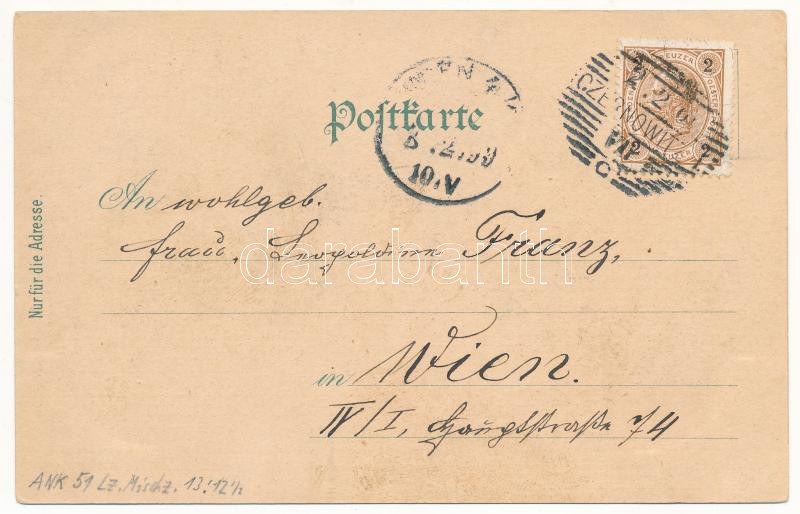 WIEN 4/1
Postkarte
10.V
2
2 KREUZER
CZERNOWITZ
2 2
An wohlgeb.
Frau, Leopoldine Franz,
darabanth
Nur für die Adresse.
in Wien.
IV/I, Hauptstraße 74
ANK 51 Lz. Mischz. 13:12½